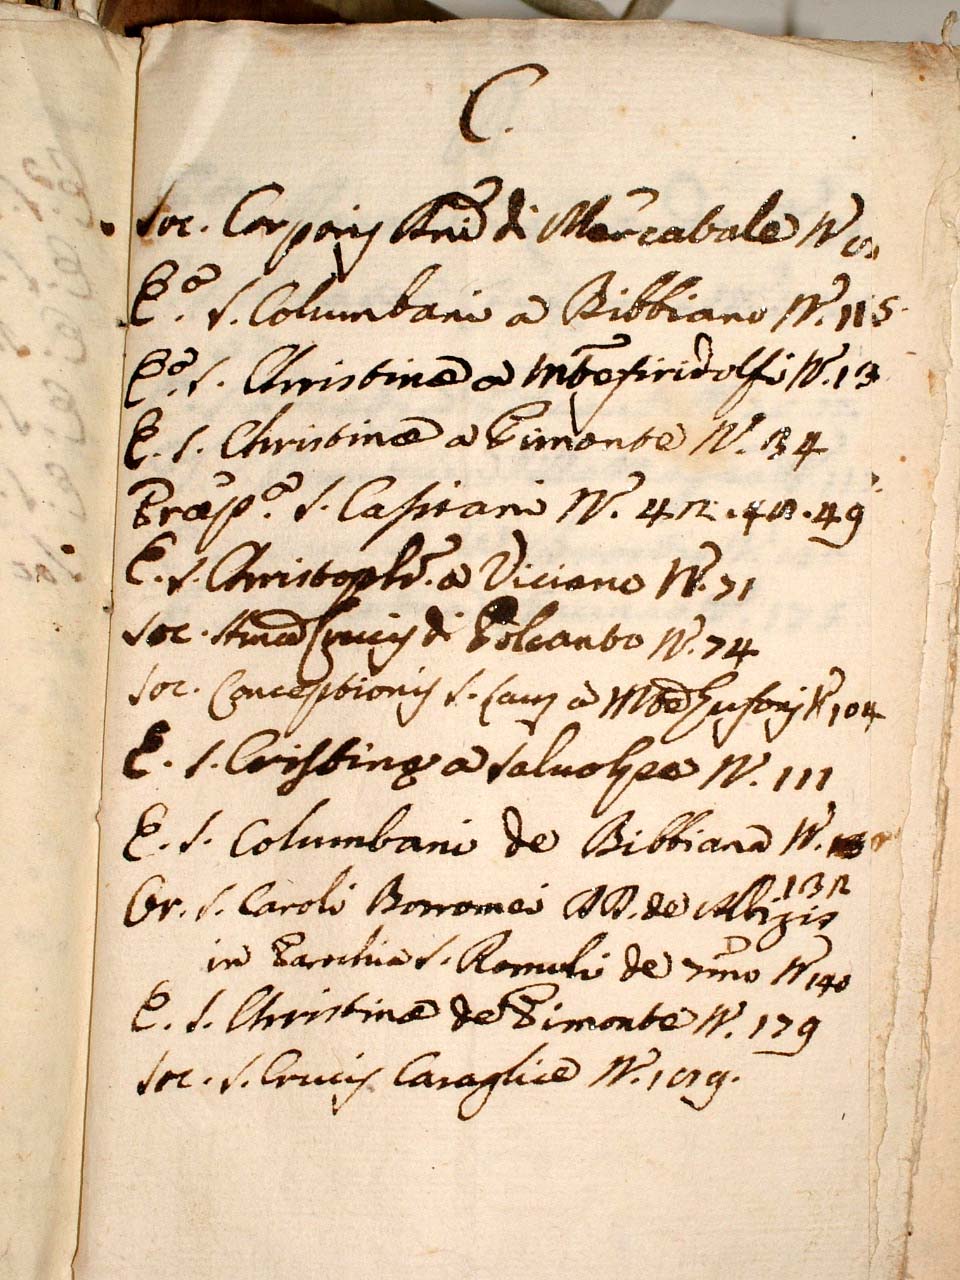 C.
Soc. Corporis Xni di Mercatale N
Eª. S. Columbani a Bibbiano N. 115
Eª. S. Christinæ a Mte firidolfi N. 13
E. S. Christinæ a Pimonte N. 34
Præpª. S. Cassiani N. 42. 48. 49
E. S. Christoph. a Viciano N. 71
Soc. Crucis di Polcanto N. 74
Soc. Conceptionis S. a N 104
E. S. Cristinę a Salivolpe N. 111
E. S. Columbani de Bibbiana N.
132
Or. S. Caroli Borromei DD. de Albizis
in Parochia S. Romuli de N 140
E. S. Christinæ de Pimonte N. 179
Soc. S. Crucis Caraglice N.